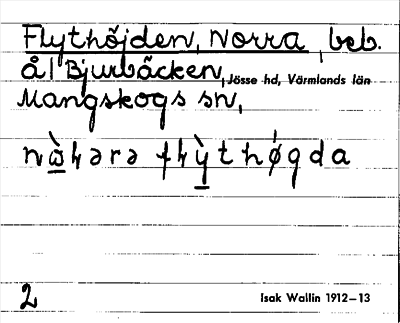 Flythöjden, Norra, beb.
å l Bjurbäcken, Jösse hd, Värmlands län
Mangskogs sn,
2 Isak Wallin 1912–13